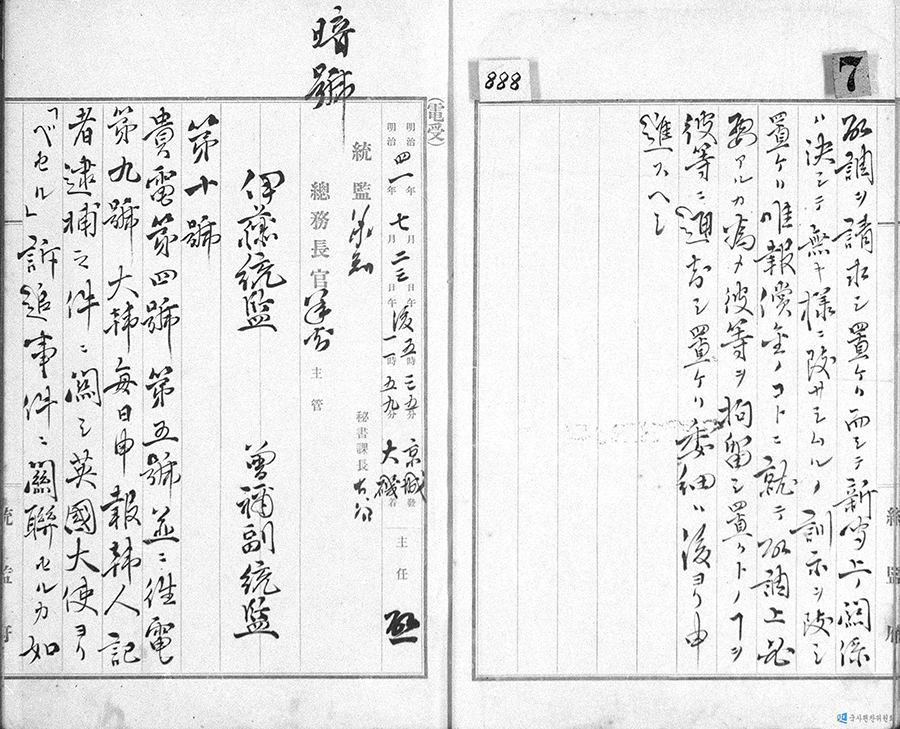 7
888
取調ヲ請求シ置ケリ而シテ新聞上ノ関係
ハ決シテ無キ様ニ致サシムルノ訓示ヲ致シ
置ケリ唯報償金ノコトニ就テ取調上必
要アルカ為メ彼等ヲ拘留シ置クトノコトヲ
彼等ニ通知シ置ケリ委細ハ後ヨリ申
進スヘシ
統監府
暗號
(電受)
明治四一年七月二三日午後五時三五分京城發
明治 年 月 日午 一一時五九分大磯着
主任
統監
秘書課長
總務長官
主管
伊藤統監
曾禰副統監
第十號
貴電第四號第五號並ニ往電
第九號大韓每日申報韓人記
者逮捕ノ件ニ関シ英國大使ヨリ
「ベセル」訴追事件ニ關聯セルカ如
統監府
국사편찬위원회